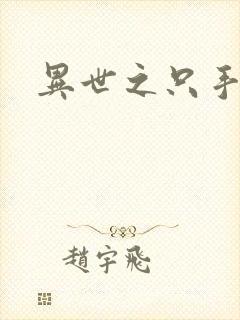 異世之只手
趙宇飛